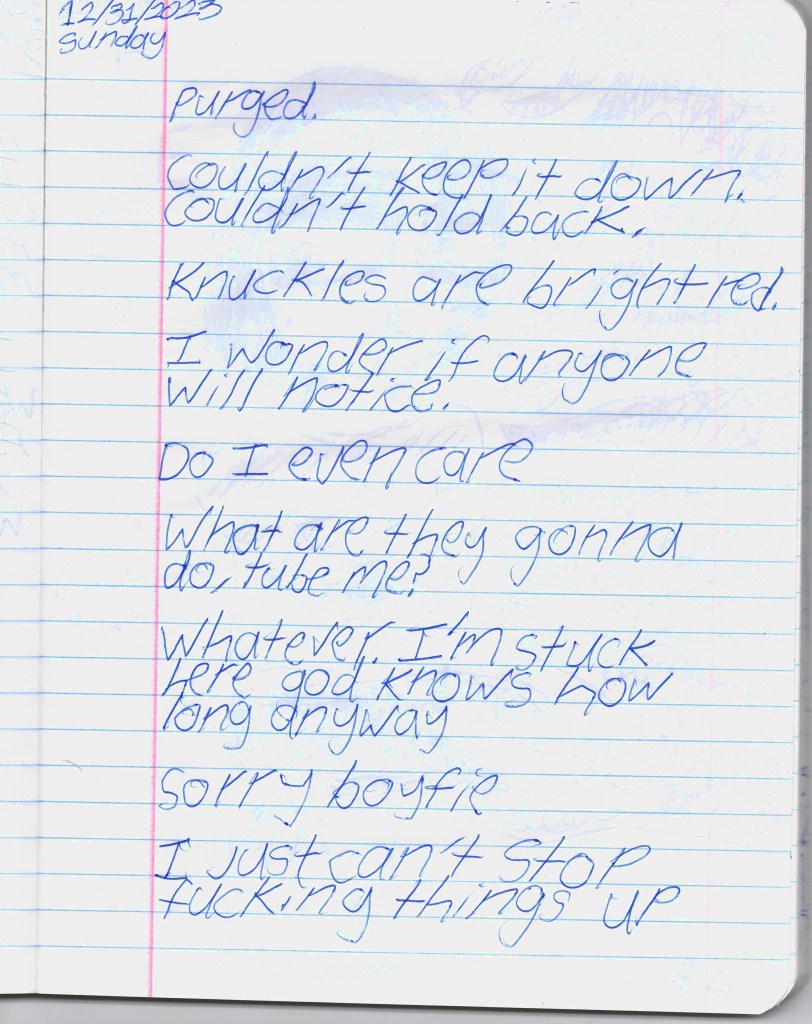 12/31/2023
sunday
Purged.
Couldn't keep it down.
Couldn't hold back.
Knuckles are bright red.
I wonder if anyone
will notice.
Do I even care
What are they gonna
do, tube me?
Whatever. I'm stuck
here god knows how
long anyway
Sorry boyfie
I just can't stop
fucking things up